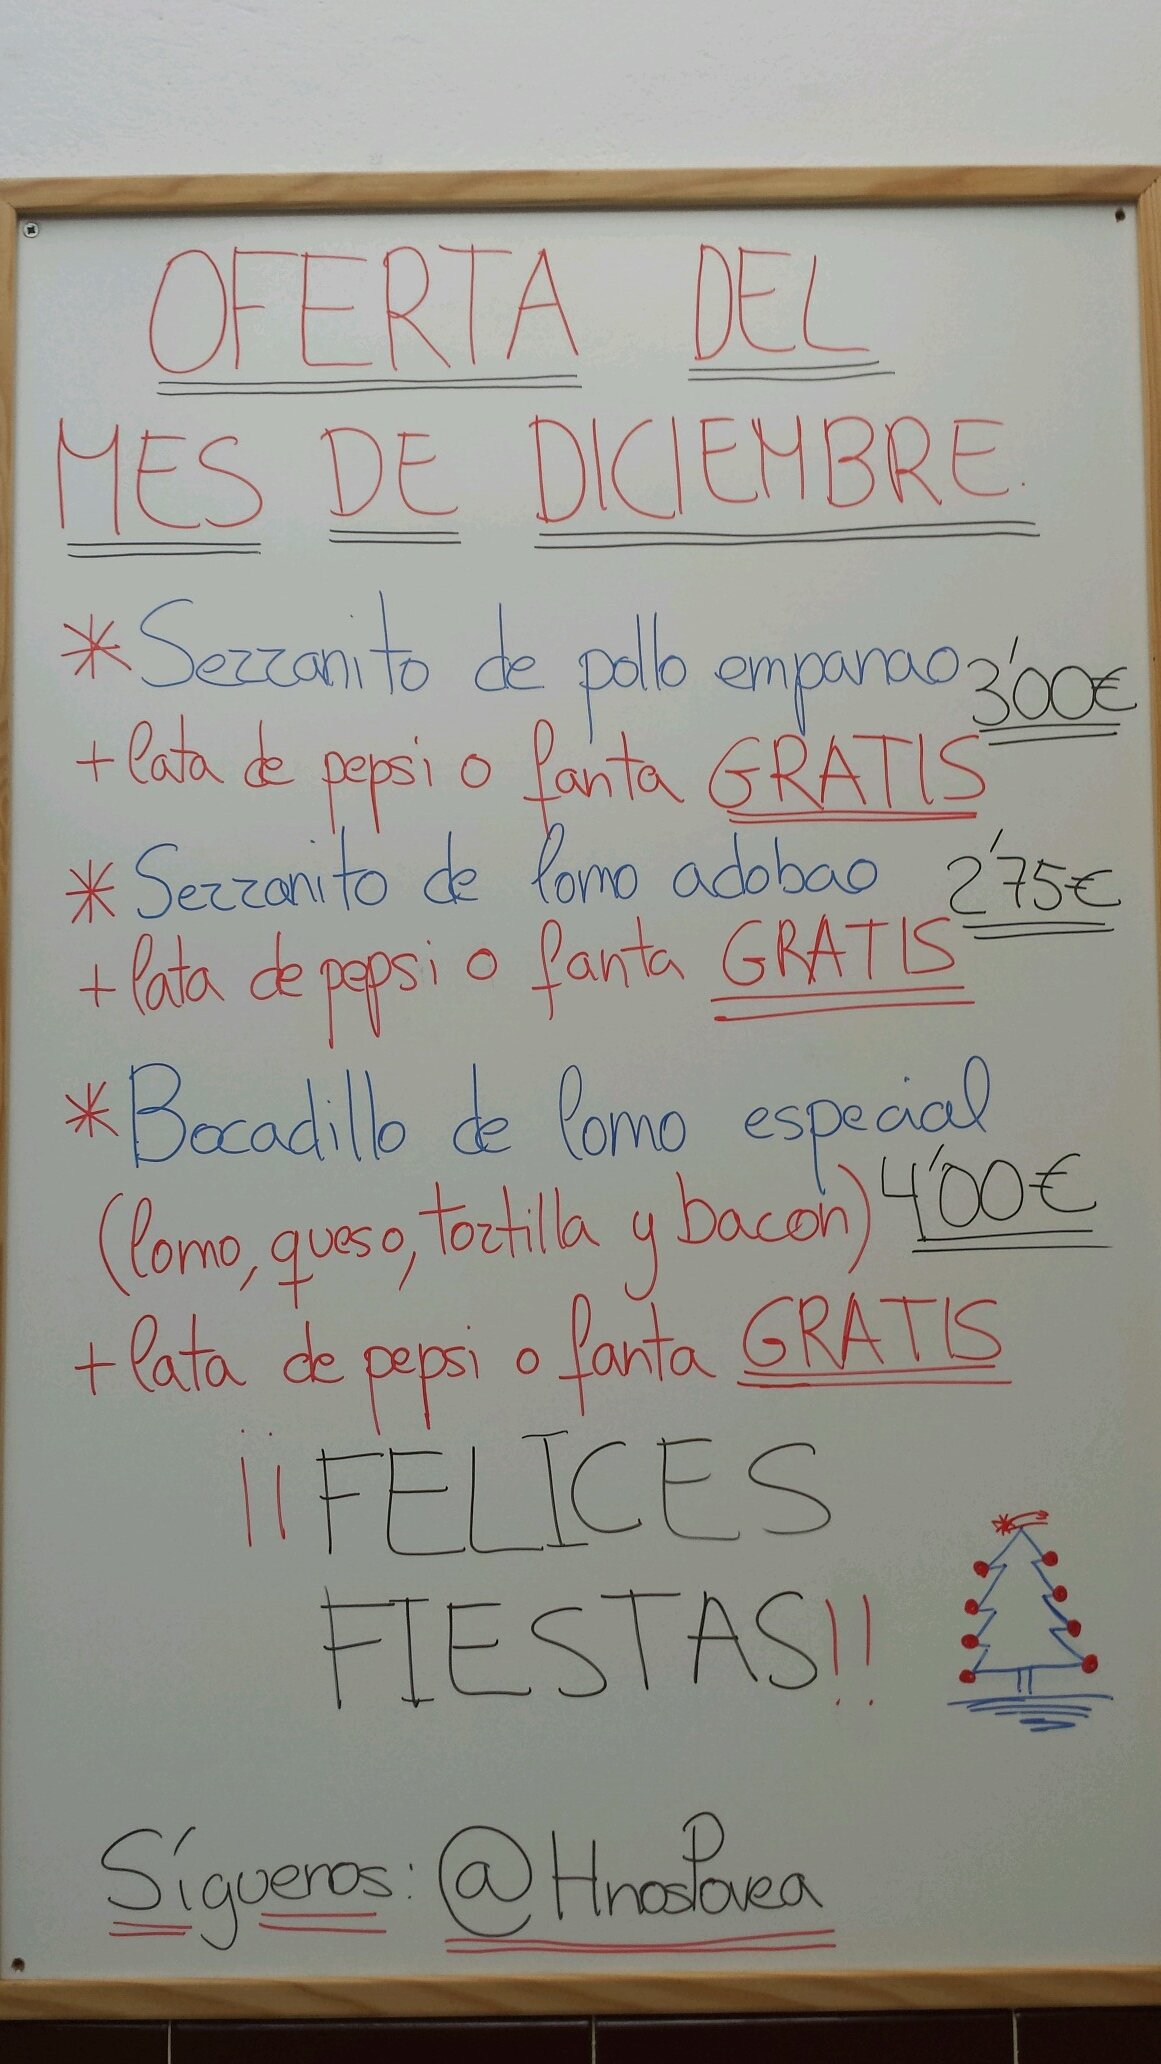 OFERTA DEL
MES DE DICIEMBRE.
* Serranito de pollo empanao 3'00€
+ lata de pepsi o fanta GRATIS
* Serranito de lomo adobao 2'75€
+ lata de pepsi o fanta GRATIS
* Bocadillo de lomo especial
(lomo, queso, tortilla y bacon) 4'00€
+ lata de pepsi o fanta GRATIS
¡¡FELICES
FIESTAS!!
Síguenos: @HnosPovea